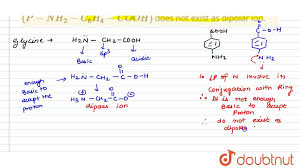 (P – NH2 – C6H4 – COOH) does not exist as dipolar ion.
Glycine → H2N – CH2 – COOH
SP3
Basic
acidic
enough
Basic to
accept the
proton
H2N – CH2 – C – O – H
O
H3N – CH2 – C – O
O
dipolar ion
COOH
NH2
C – O – H
O
NH2
LP of N involve in
Conjugation with Ring
∴ N is not enough
Basic to accept
Proton
∴ do not exist as
dipolar
doubtnut